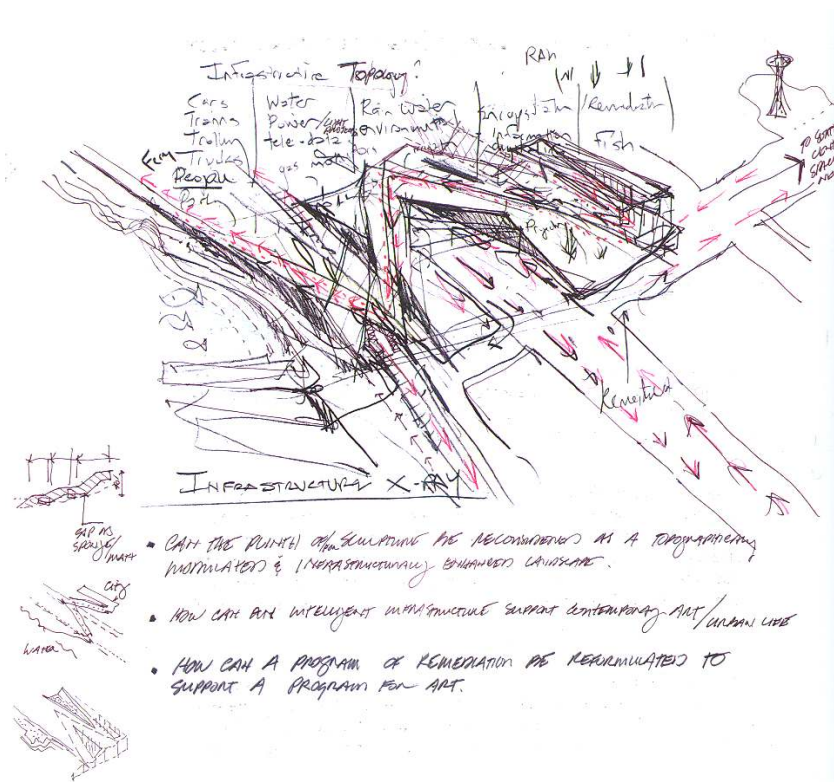 Infrastructure Topology
RAIN
Cars
Trains
Trolley
People
Path
Water
Power/
tele-data
gas
Rain Water
environmental
Information
Remediation
Fish
Ferry
TO
INFRASTRUCTURE X-RAY
SLIP AS
SPONGE/
MATT
CITY
WATER
• CAN THE PLINTH OF/FOR SCULPTURE BE RECONSIDERED AS A TOPOGRAPHICALLY
MODULATED & INFRASTRUCTURALLY ENHANCED LANDSCAPE.
• HOW CAN AN INTELLIGENT INFRASTRUCTURE SUPPORT CONTEMPORARY ART/URBAN LIFE
• HOW CAN A PROGRAM OF REMEDIATION BE REFORMULATED TO
SUPPORT A PROGRAM FOR ART.